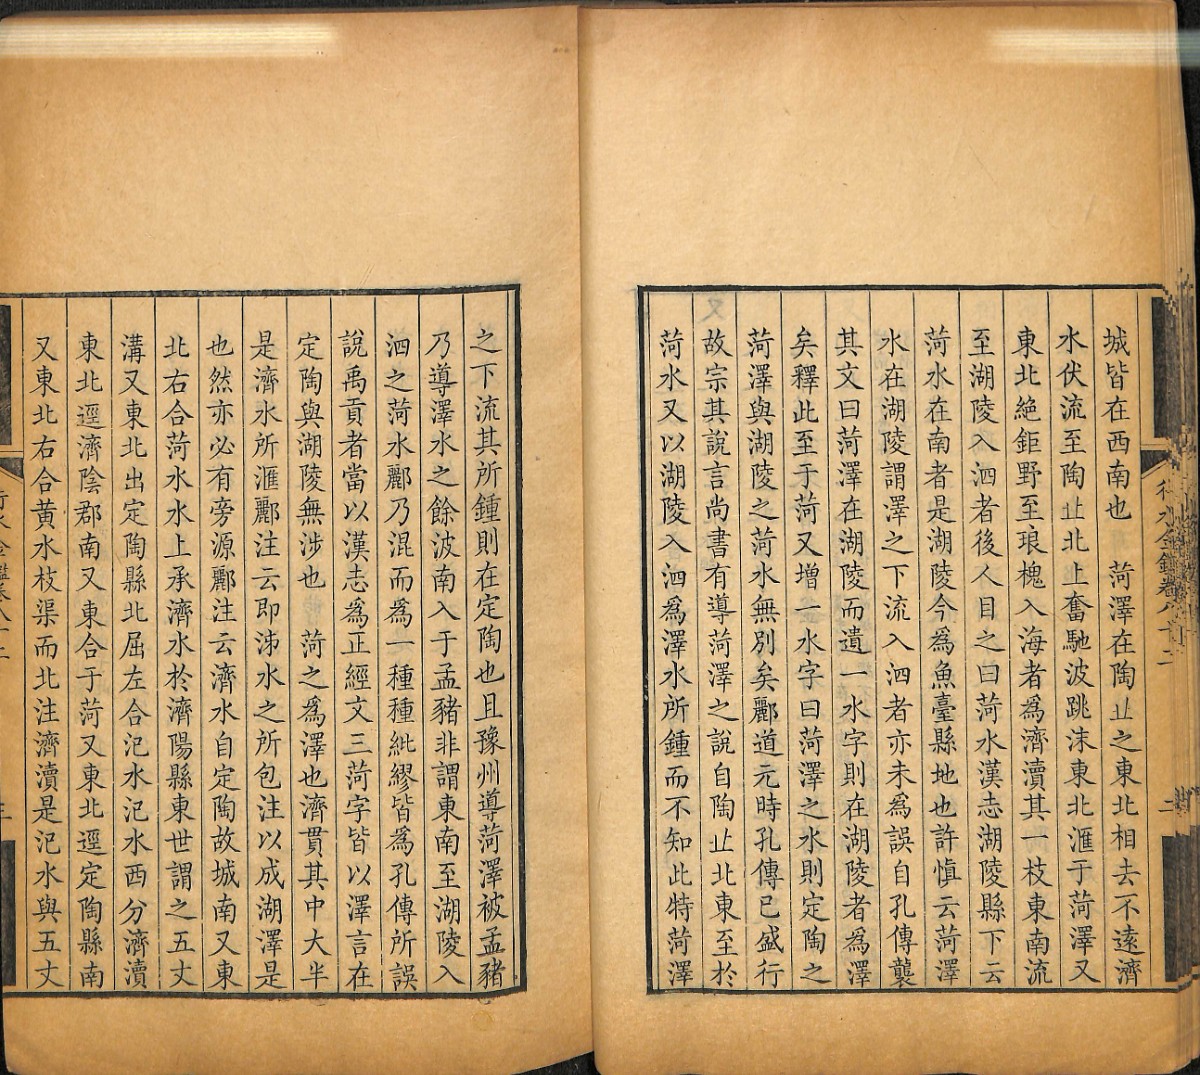 城皆在西南也　菏澤在陶丠之東北相去不遠濟
水伏流至陶丠北上奮馳波跳沫東北滙于菏澤又
東北絶鉅野至琅槐入海者爲濟瀆其一枝東南流
至湖陵入泗者後人目之曰菏水漢志湖陵縣下云
菏水在南者是湖陵今爲魚臺縣地也許慎云菏澤
水在湖陵謂澤之下流入泗者亦未爲誤自孔傳襲
其文曰菏澤在湖陵而遺一水字則在湖陵者爲澤
矣釋此至于菏又增一水字曰菏澤之水則定陶之
菏澤與湖陵之菏水無別矣酈道元時孔傳已盛行
故宗其說言尚書有導菏澤之說自陶丠北東至於
菏水又以湖陵入泗爲澤水所鍾而不知此特菏澤
之下流其所鍾則在定陶也且豫州導菏澤被孟豬
乃導澤水之餘波南入于孟豬非謂東南至湖陵入
泗之菏水酈乃混而爲一種種紕繆皆爲孔傳所誤
說禹貢者當以漢志爲正經文三菏字皆以澤言在
定陶與湖陵無涉也　菏之爲澤也濟貫其中大半
是濟水所滙酈注云即沛水之所包注以成湖澤是
也然亦必有旁源酈注云濟水自定陶故城南又東
北右合菏水水上承濟水於濟陽縣東世謂之五丈
溝又東北出定陶縣北屈左合汜水汜水西分濟瀆
東北逕濟陰郡南又東合于菏又東北逕定陶縣南
又東北右合黃水枝渠而北注濟瀆是汜水與五丈